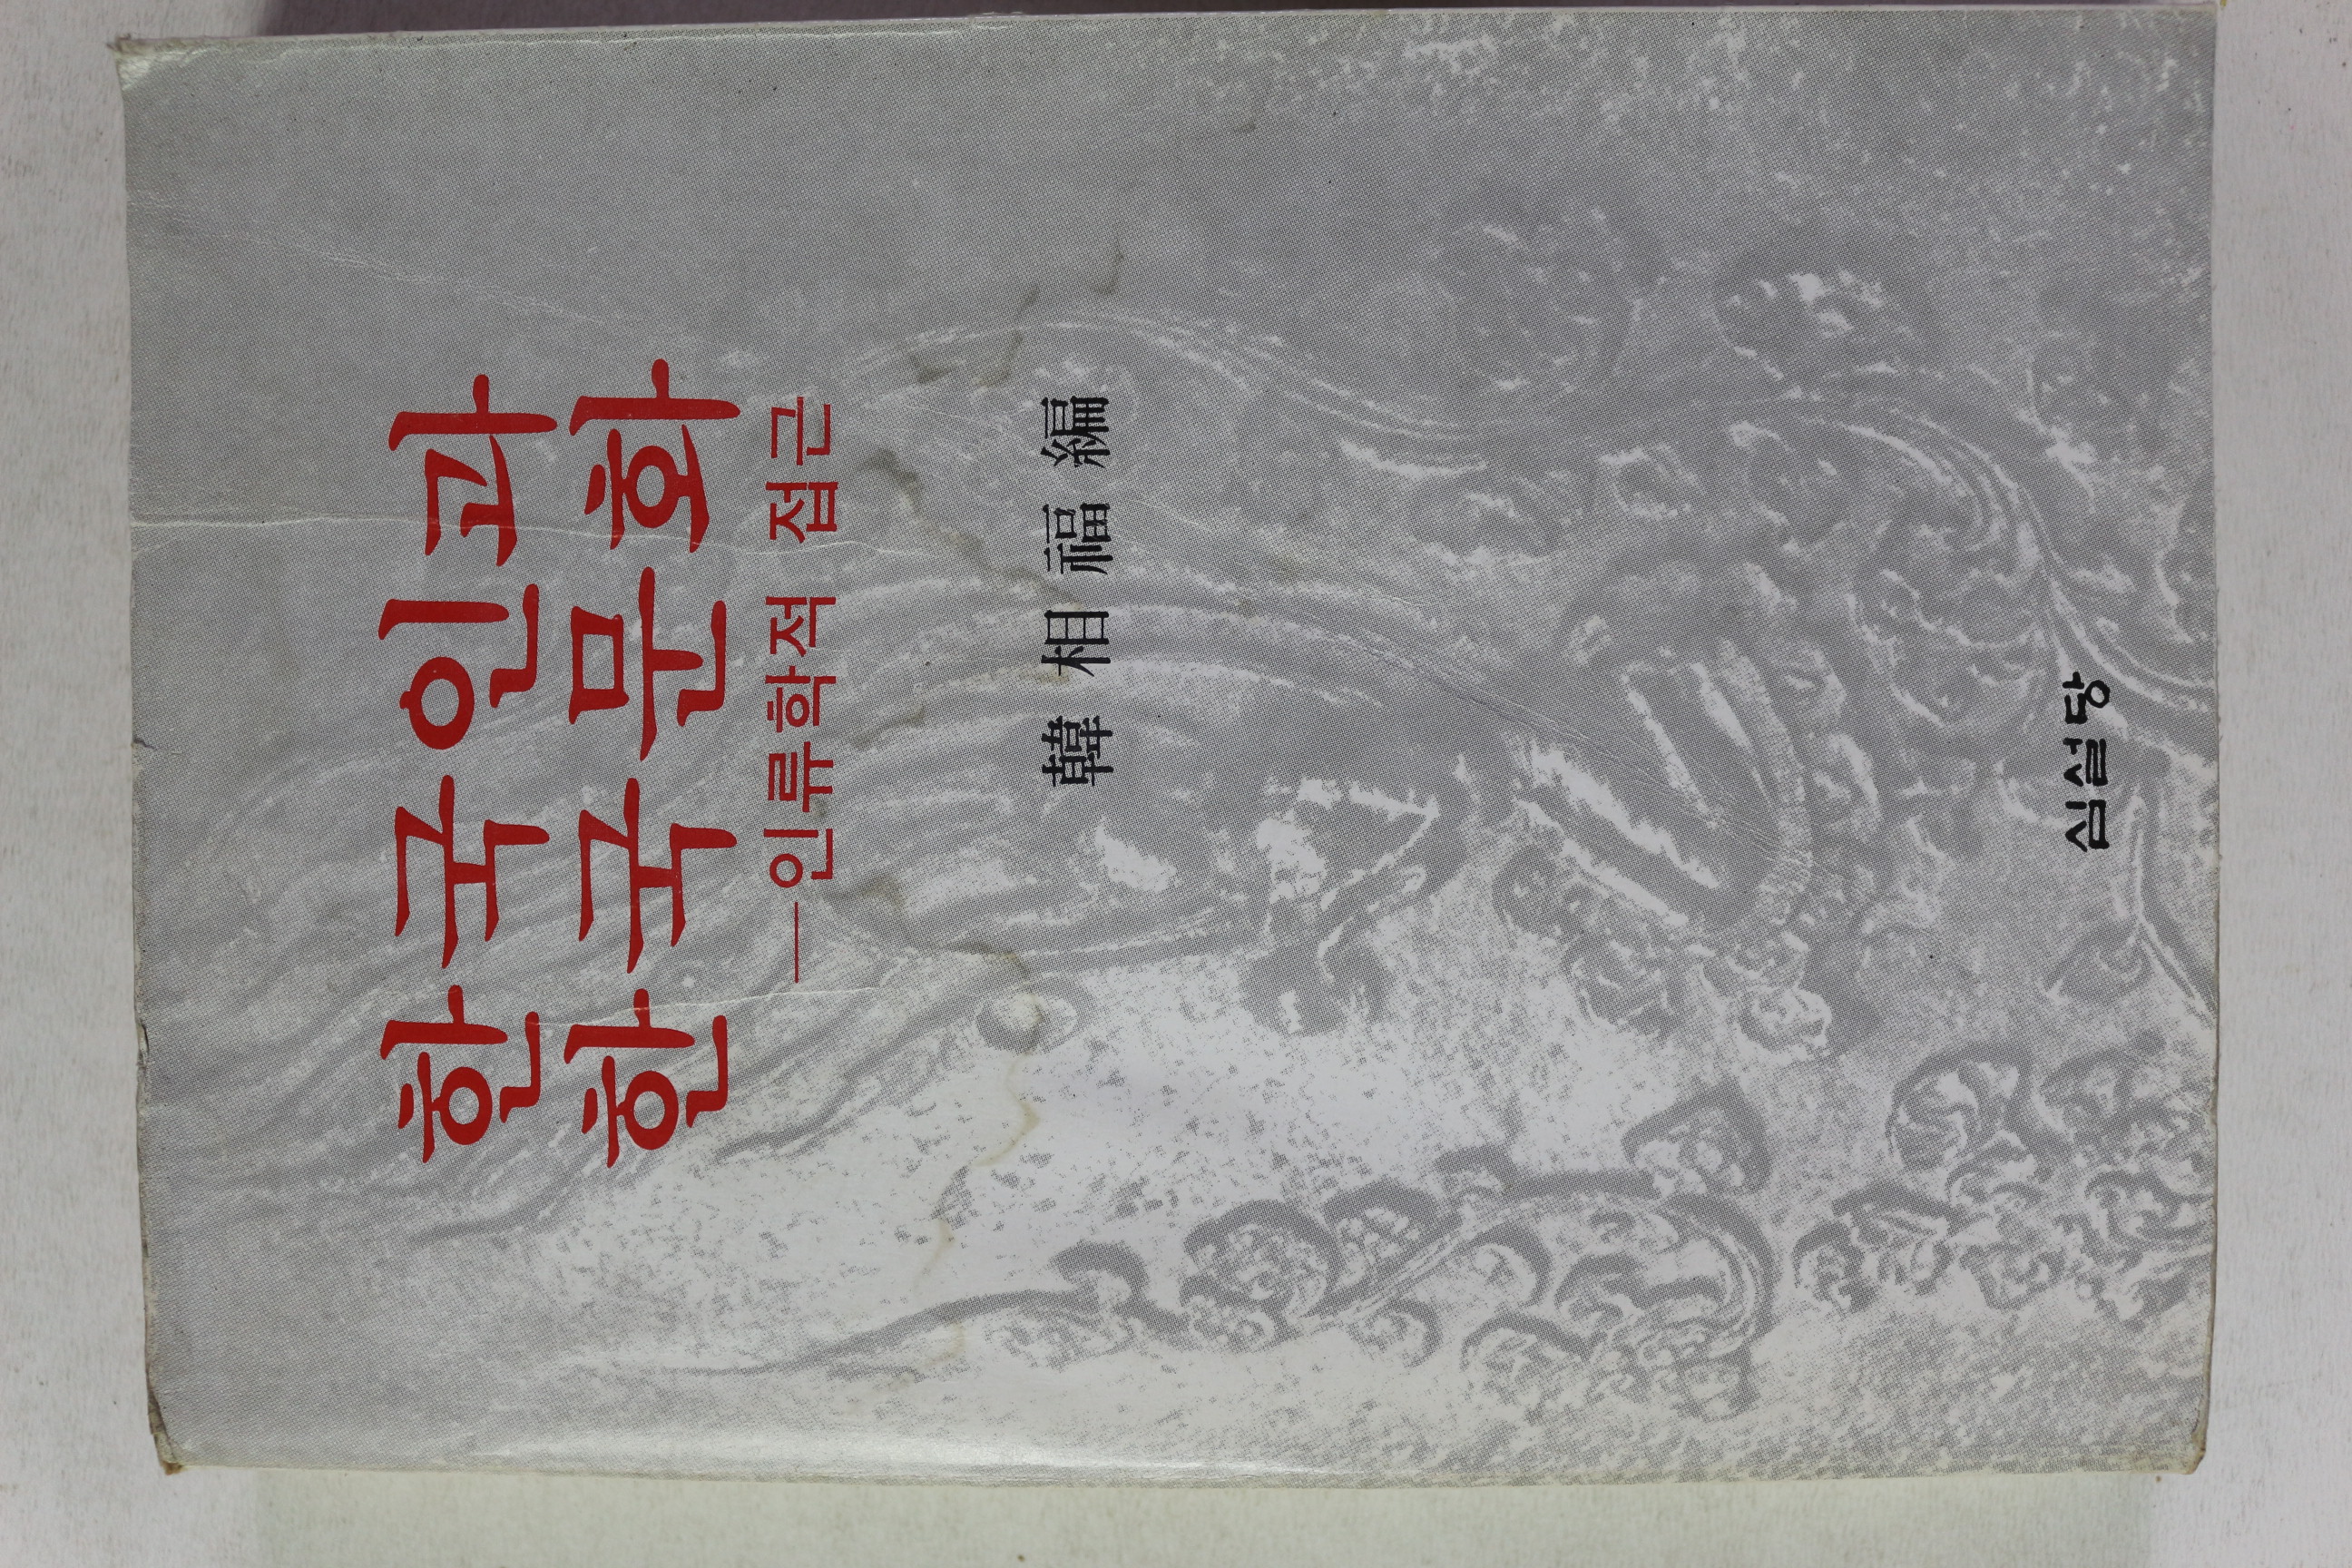 한국인과
한국문화
—인류학적 접근
韓相福 編
심설당